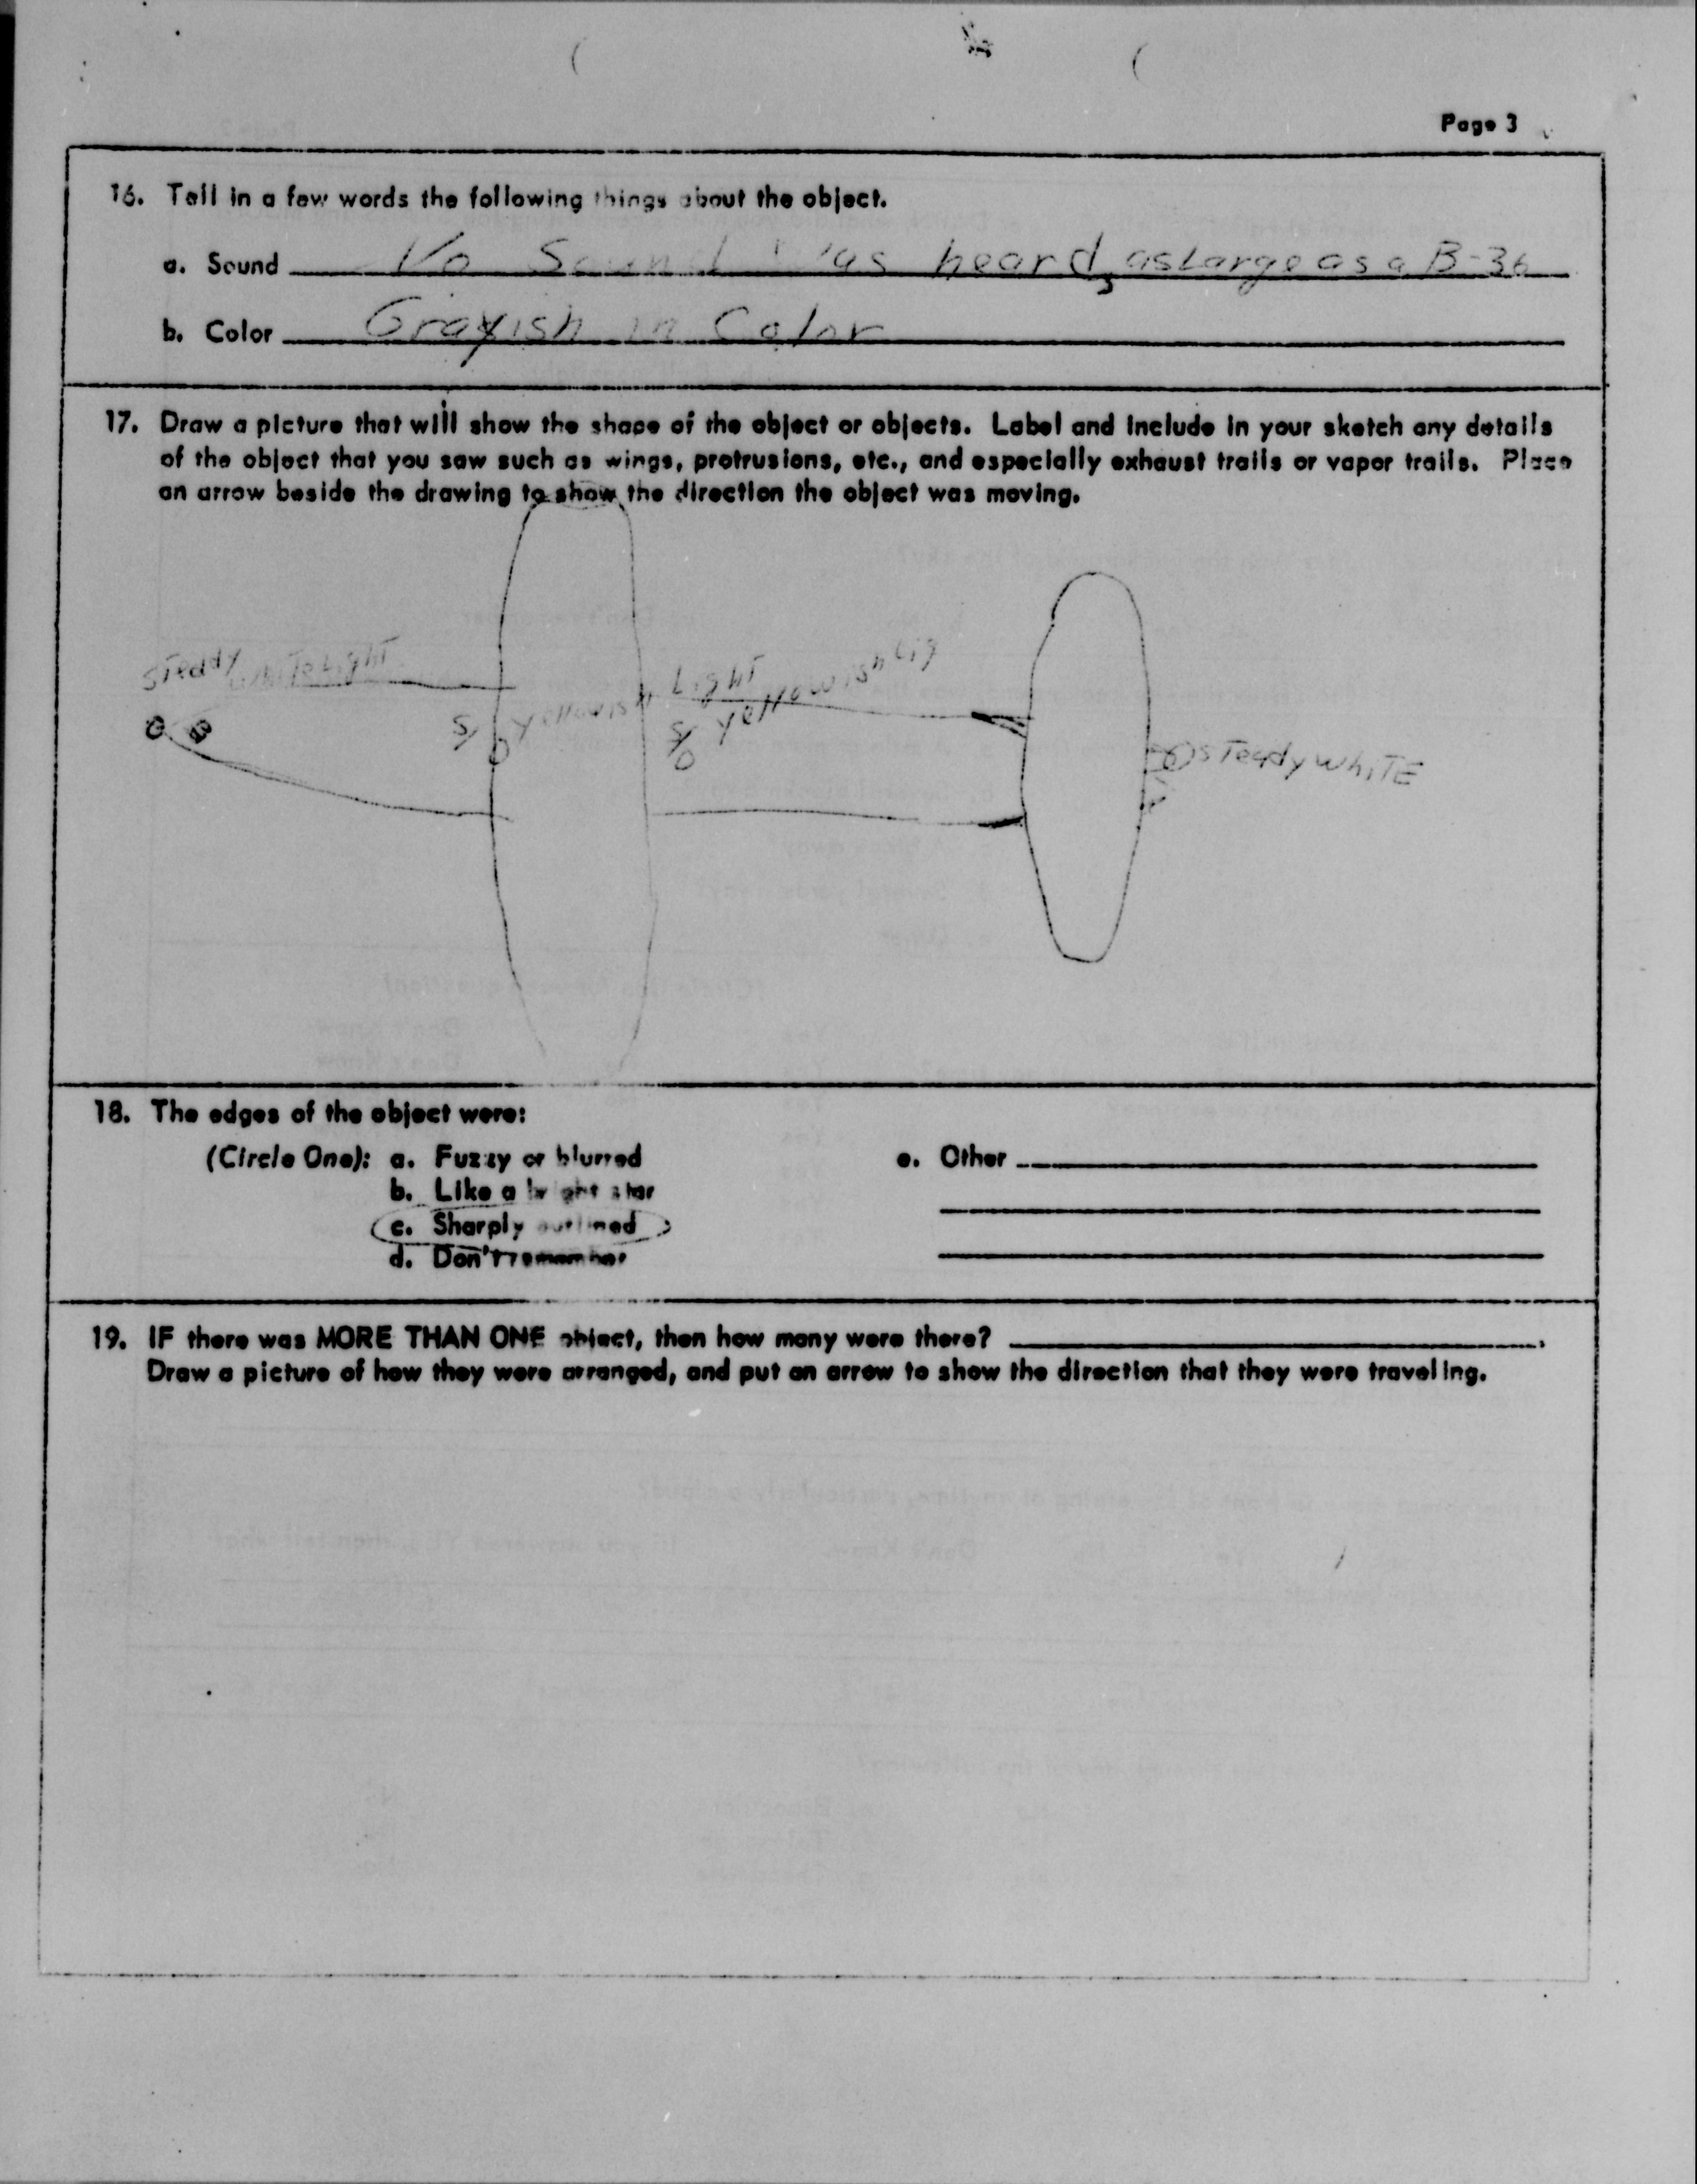 Page 3
16. Tell in a few words the following things about the object.
a. Sound No Sound was heard, as Large as a B-36
b. Color Grayish in Color
17. Draw a picture that will show the shape of the object or objects. Label and include in your sketch any details
of the object that you saw such as wings, protrusions, etc., and especially exhaust trails or vapor trails. Place
an arrow beside the drawing to show the direction the object was moving.
Steady White Light
Yellowish Light
Yellowish Lig
Steady White
18. The edges of the object were:
(Circle One): a. Fuzzy or blurred
b. Like a bright star
c. Sharply outlined
d. Don't remember
e. Other
19. IF there was MORE THAN ONE object, then how many were there?
Draw a picture of how they were arranged, and put an arrow to show the direction that they were traveling.